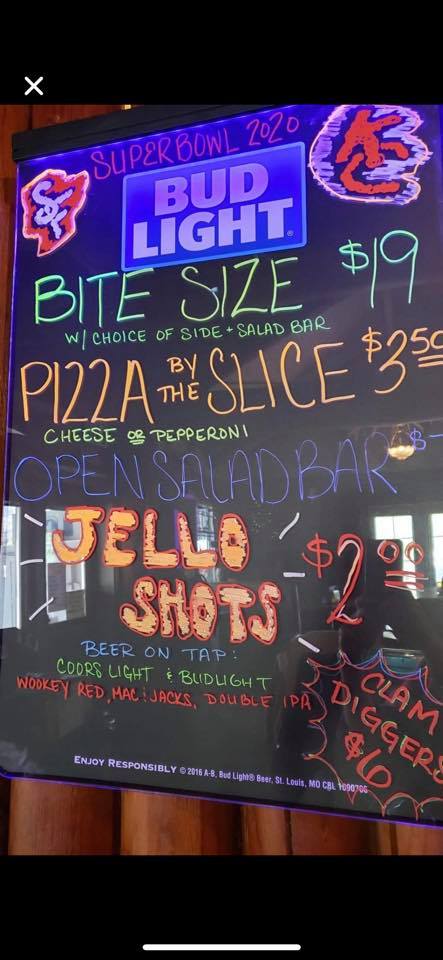 SUPERBOWL 2020
SF
KC
BUD
LIGHT®
BITE SIZE $19
W/ CHOICE OF SIDE + SALAD BAR
PIZZA BY THE SLICE $3.50
CHEESE OR PEPPERONI
OPEN SALAD BAR $
JELLO
SHOTS
$2.00
BEER ON TAP:
COORS LIGHT & BUDLIGHT
WOOKEY RED, MAC & JACKS, DOUBLE IPA
CLAM
DIGGERS
$6
ENJOY RESPONSIBLY © 2016 A-B, Bud Light® Beer, St. Louis, MO